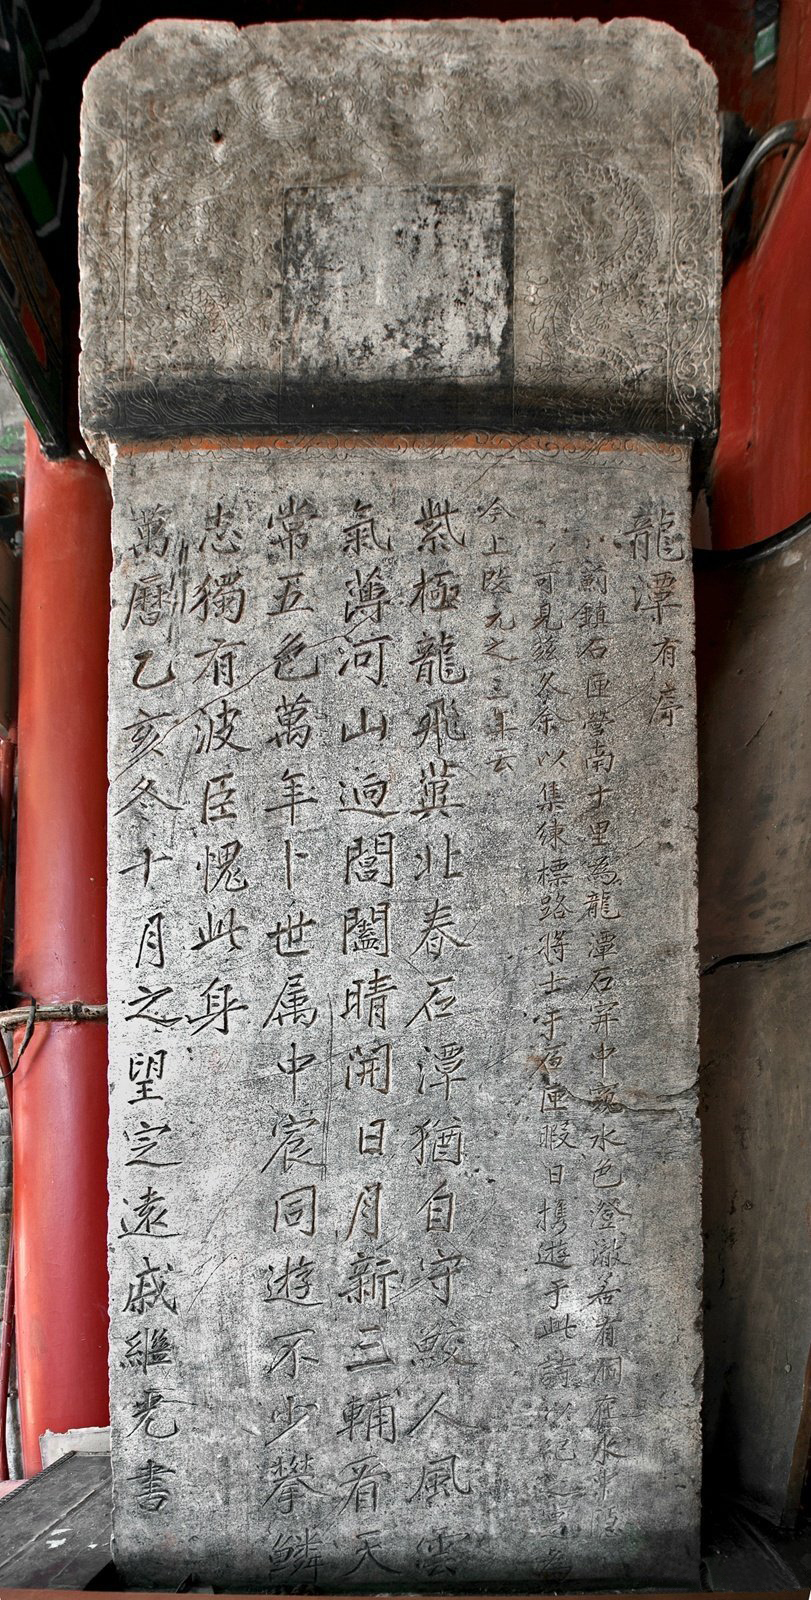 龍潭有序
薊鎮石匣營南十里為龍潭石穽中窺水色澄澈若有洞在水中
可見茲冬余以集練標路將士于石匣暇日携遊于此詩以紀之
今上改元之三年云
紫極龍飛冀北春石潭猶自守鮫人風雲
氣薄河山迥閶闔晴開日月新三輔看天
常五色萬年卜世属中宸同遊不少攀鱗
志獨有波臣愧此身
萬曆乙亥冬十月之望定遠戚繼光書